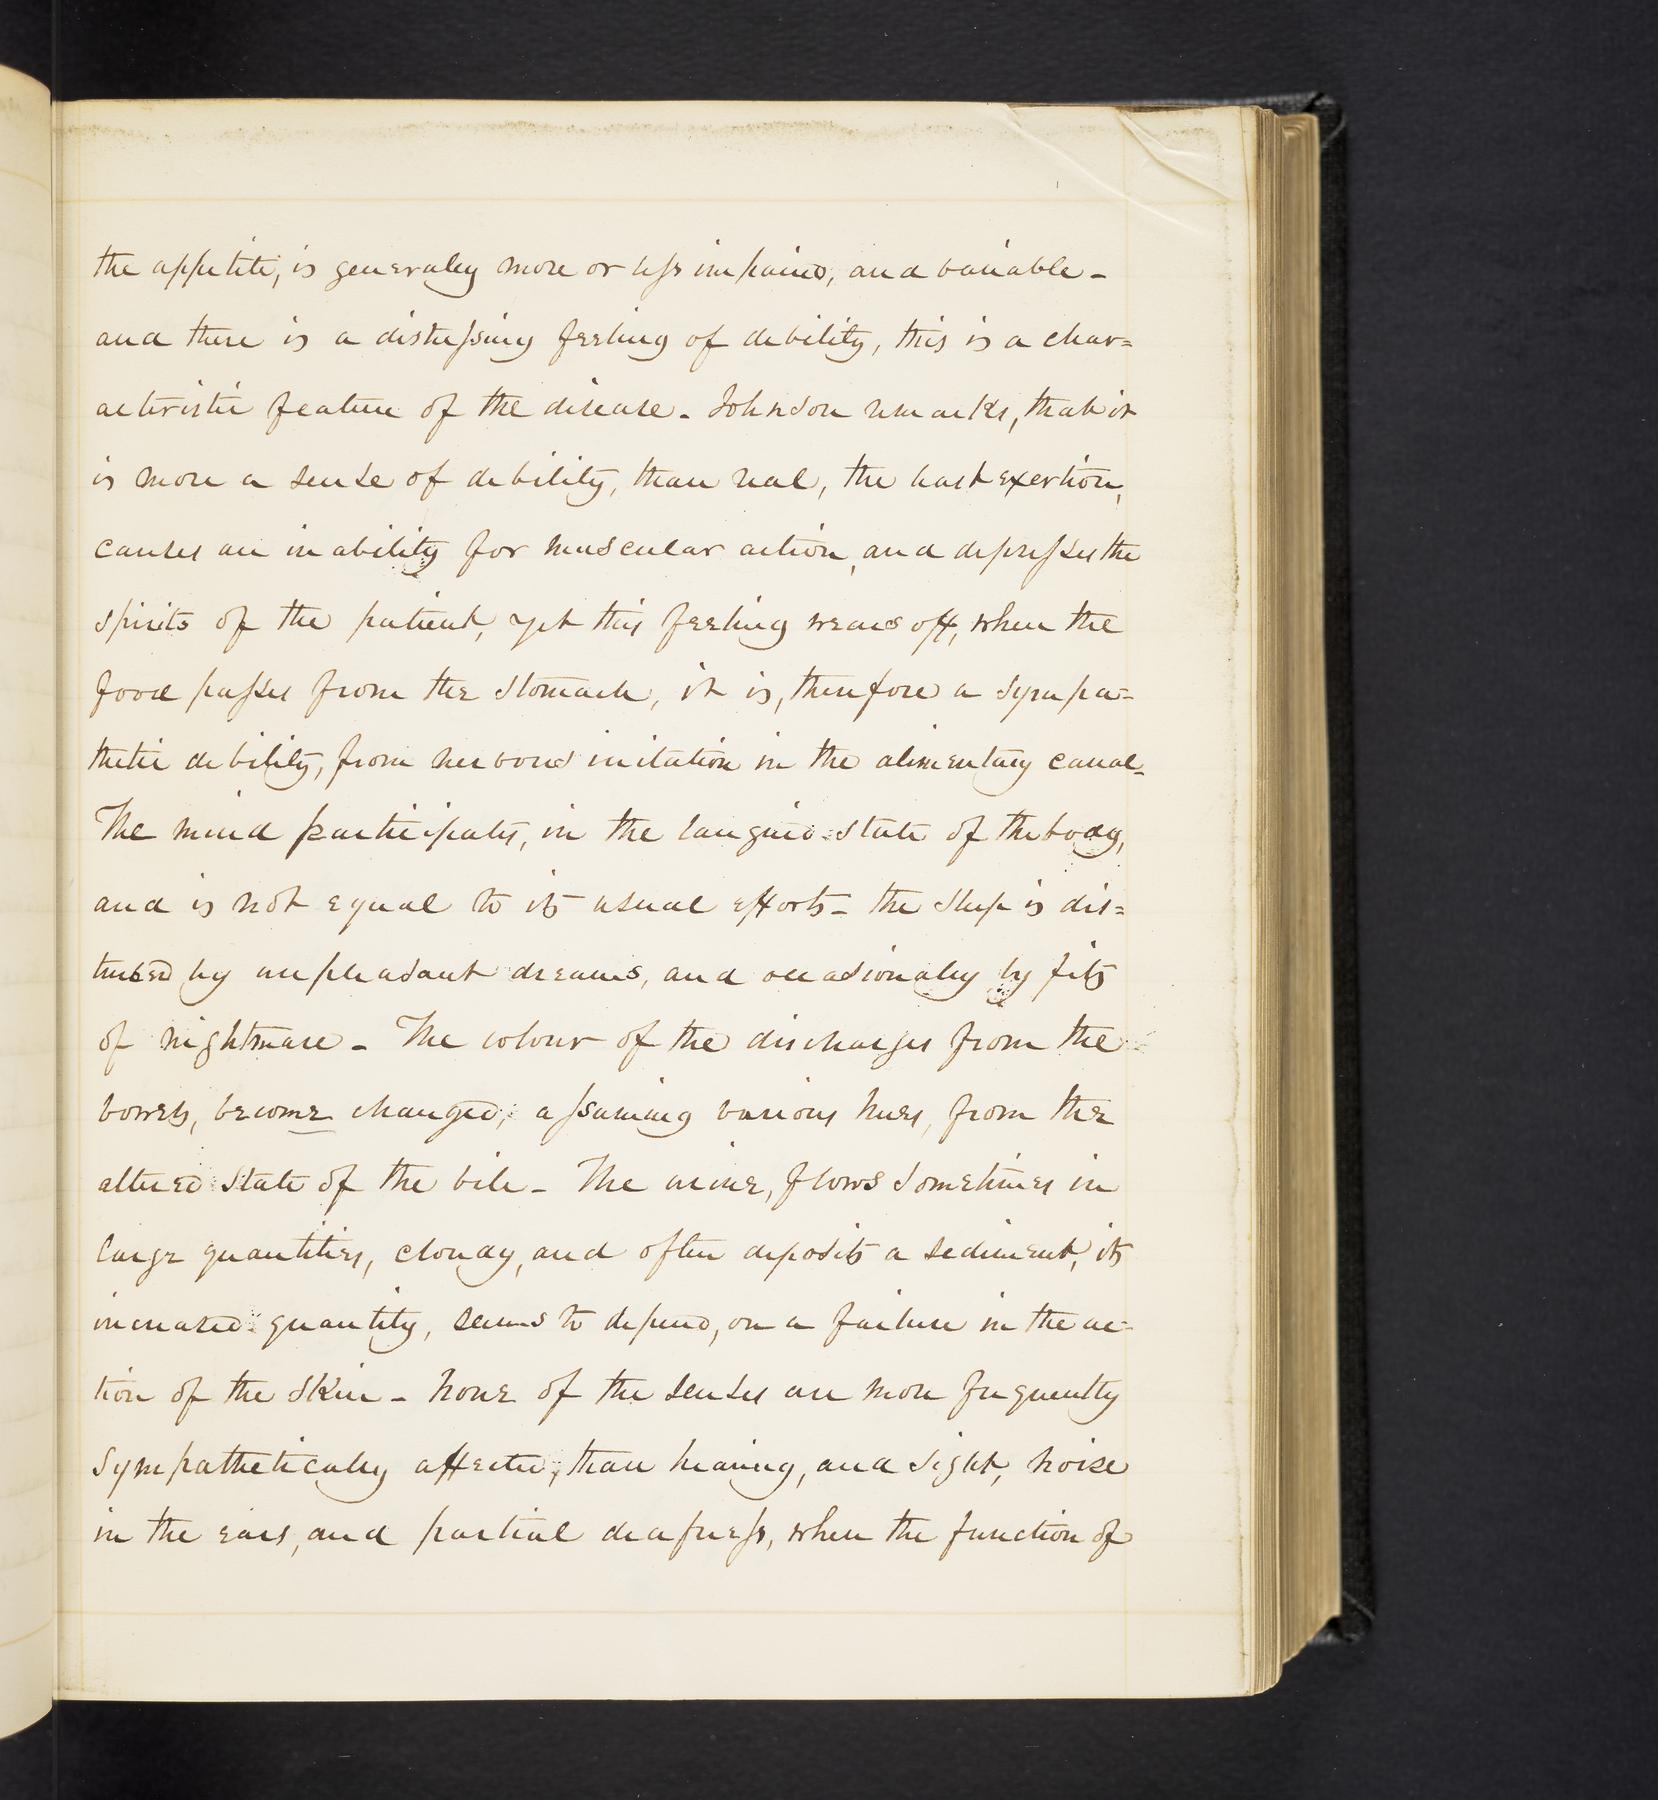 the appetite, is generaley more or less impaired, and variable -
and there is a distressing feeling of debility, this is a char=
acteristic feature of the disease - Johnson remarks, that it
is more a sense of debility, than real, the least exertion,
causes an inability for muscular action, and depresses the
spirits of the patient, yet this feeling wears off, when the
food passes from the stomach, it is, therefore a sympa=
thetic debility, from nervous irritation in the alimentary canal -
The mind participates, in the languid state of the body,
and is not equal to its usual efforts - the sleep is dis=
turbed by unpleasant dreams, and occasionaley by fits
of nightmare - The colour of the discharges from the
bowels, become changed, assuming various hues, from the
altered state of the bile - The urine, flows sometimes in
large quantities, cloudy, and often deposits a sediment, its
increased quantity, seems to depend, on a failure in the ac-
tion of the skin - None of the senses are more frequently
sympatheticaley affected, than hearing, and sight, noise
in the ears, and partial deafness, when the function of